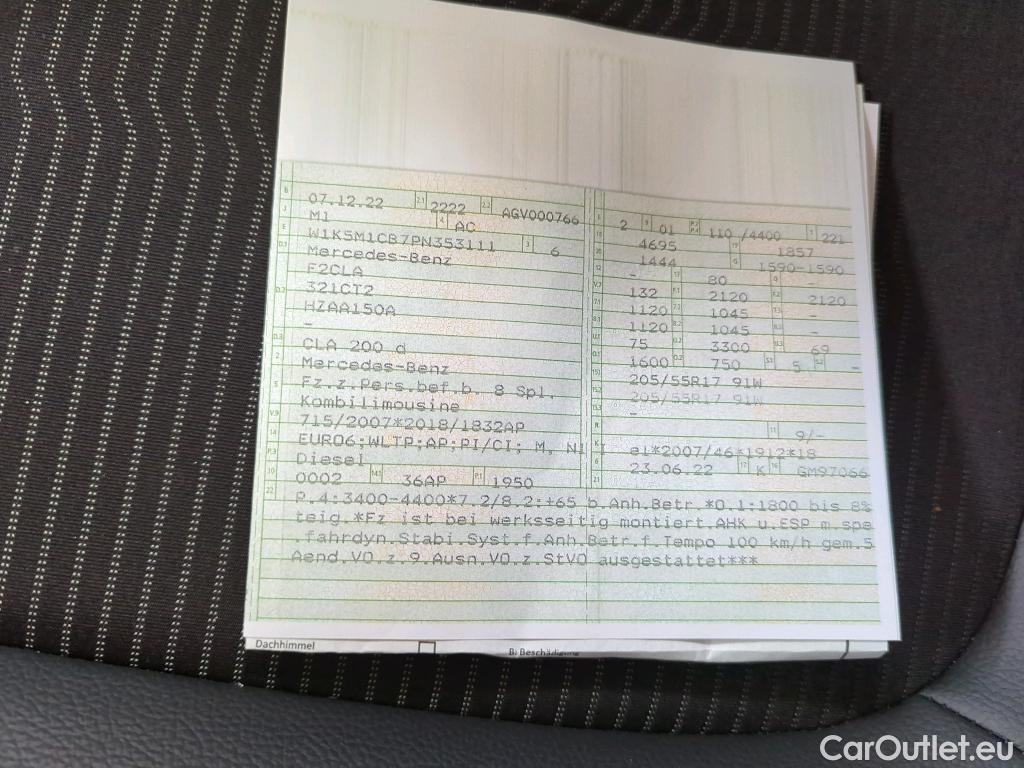 B 07.12.22 2.1 2222 2.2 AGV000766
J M1 4 AC
E W1K5M1CB7PN353111 3 6
D.1 Mercedes-Benz
F2CLA
D.2 321CT2
HZAA150A
-
D.3 CLA 200 d
2 Mercedes-Benz
5 Fz.z.Pers.bef.b. 8 Spl.
Kombilimousine
V.9 715/2007*2018/1832AP
14 EURO6;WLTP;AP;PI/CI; M, N1 I
P.3 Diesel
10 0002 14.1 36AP P.1 1950
L 2 9 01 P.2 P.4 110 /4400 T 221
18 4695 19 1857
20 1444 G 1590-1590
12 - 13 80 Q -
V.7 132 F.1 2120 F.2 2120
7.1 1120 7.2 1045 7.3 -
8.1 1120 8.2 1045 8.3 -
U.1 75 U.2 3300 U.3 69
O.1 1600 O.2 750 S.1 5 S.2 -
15.1 205/55R17 91W
15.2 205/55R17 91W
15.3 -
R 11 9/-
K e1*2007/46*1912*18
6 23.06.22 17 K 16 GM97066
21
22 P.4:3400-4400*7.2/8.2:+65 b.Anh.Betr.*O.1:1800 bis 8%
teig.*Fz ist bei werksseitig montiert.AHK u.ESP m spe
.fahrdyn.Stabi.Syst.f.Anh.Betr.f.Tempo 100 km/h gem.5
Aend.VO.z.9.Ausn.VO.z.StVO ausgestattet***
Dachhimmel B: Beschädigung
CarOutlet.eu